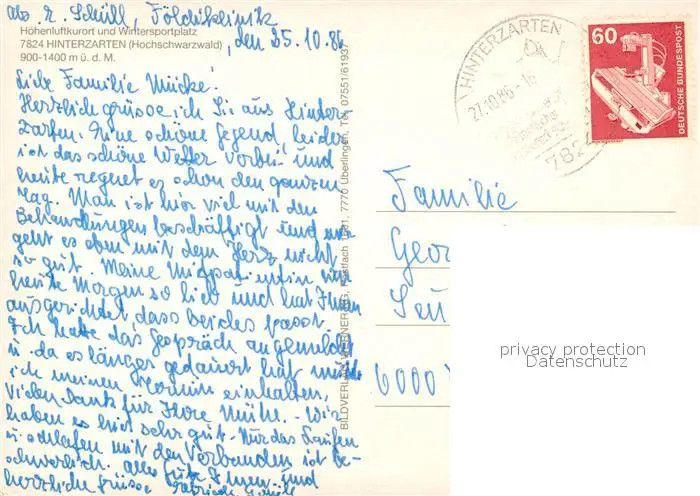 Abs. E. Schüll, Földiklinik
Höhenluftkurort und Wintersportplatz
7824 HINTERZARTEN (Hochschwarzwald)
, den 25.10.86
900-1400 m ü. d. M.
Liebe Familie Mücke!
Herzlich grüsse ich Sie aus Hinter-
zarten. Eine schöne Gegend, leider
ist das schöne Wetter vorbei und
heute regnet es schon den ganzen
Tag. Man ist hier viel mit den
Behandlungen beschäftigt und mir
geht es eben mit dem Herz nicht
so gut. Meine Mitpatientin war
heute Morgen so lieb und hat Ihnen
ausgerichtet dass beides passt.
Ich hatte das Gespräch angemeldet
u. da es länger gedauert hat musste
ich meinen Termin einhalten,
Vielen Dank für Ihre Mühe. Wir
haben es hier sehr gut. Nur das Laufen
u. schlafen mit den Verbanden ist be-
schwerlich. Alles Gute Ihnen und
herzliche Grüsse
BILDVERLAG WERNER Postfach 1931, 7770 Überlingen, Tel. 07551/61937
HINTERZARTEN
27.10.86-16
782
60
DEUTSCHE BUNDESPOST
Familie
Geor
6000
privacy protection
Datenschutz